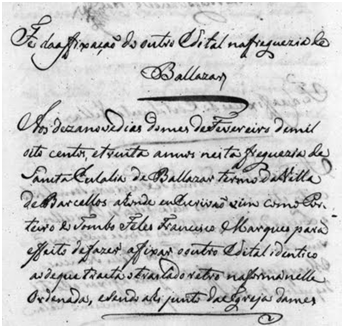 Fé da affixação do outro Edital na freguezia de
Ballazar
Aos dezanove dias do mes de Fevereiro de mil
oito centos, e trinta annos nesta freguezia de
Santa Eulalia de Ballazar termo da Villa
de Barcellos aonde eu Escrivão vim com o Por-
teiro do Tombo Feles Francisco Marques para
effeito de fazer affixar o outro Edital identico
ao de que tracta o traslado retro na forma nelle
Ordenada, e sendo ahi junto da Igreja da mes